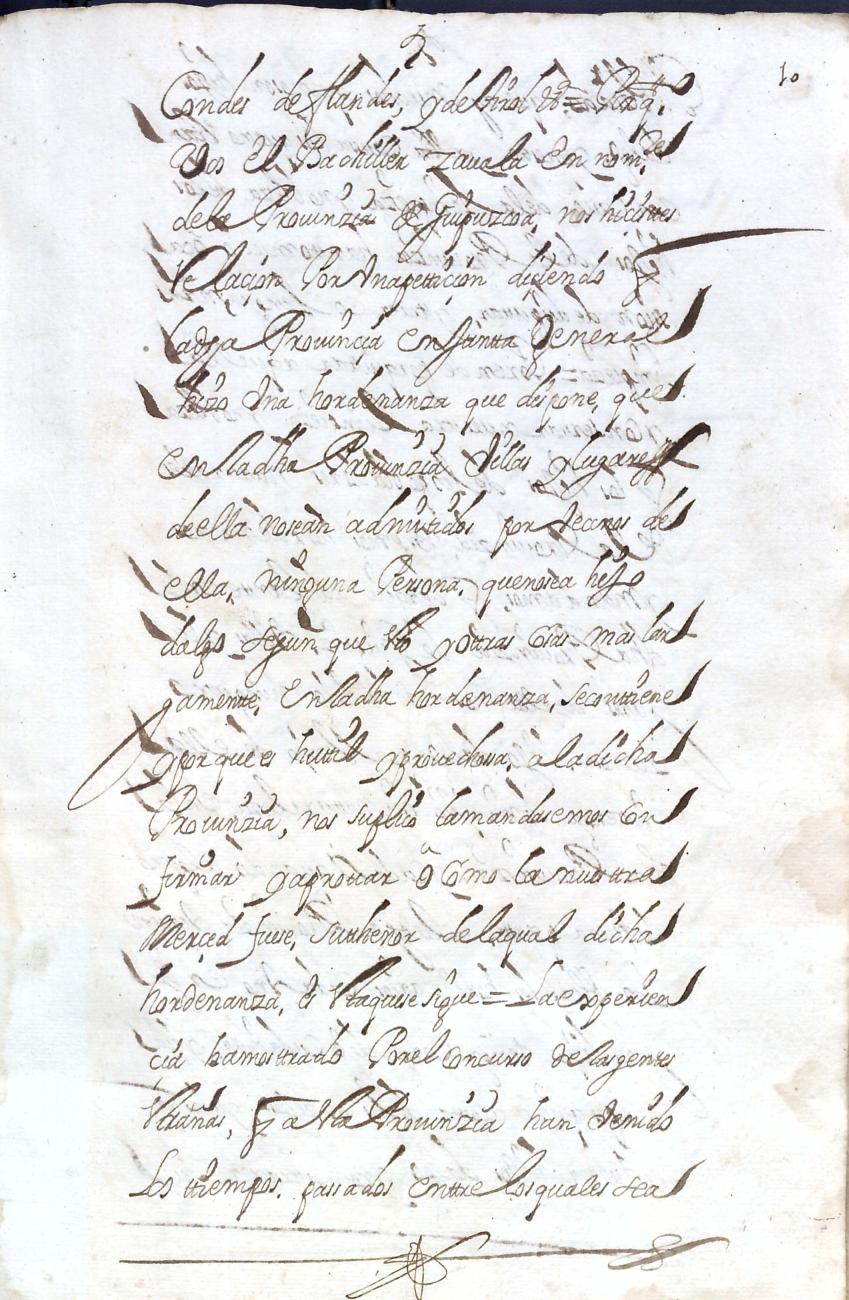 10
Condes de flandes, y de tirol &ª =
Vos el Bachiller zauala En nom.e
dela Prouinzia de Guipuzcoa, nos hicistes
Relaçion Por vna petiçion diciendo q
la dha Prouinçia en Juntta General
hizo vna hordenanza que dispone, que
en la dha Prouinzia Villas y lugares
de ella no sean admitidos por vecinos de
ella, ninguna Persona, que no sea hijo
dalgo segun que esto y ottras cosas mas lar
gamentte, En la dha hordenanza, se conttiene
y por que es huttil y prouechossa, a la dicha
Prouinzia, nos suplico la mandasemos con
firmar y aprouar o como la nuesttra
Merçed fuese, su thenor de la qual dicha
hordenanza, es Este que se sigue = La experien
cia ha mosttrado Por el Concurso de las gentes
Estrañas, q a esta Prouinzia han, Venido
Los ttiempos passados enttre los quales sea